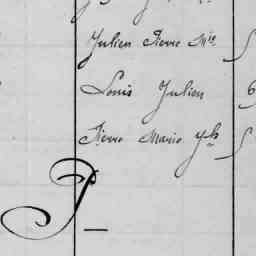 Julien Pierre Mie
Louis Julien
Pierre Marie Jh
P
—